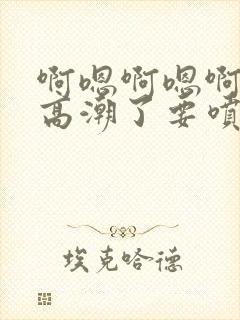 啊嗯啊嗯啊
高潮了要噴
埃克哈德